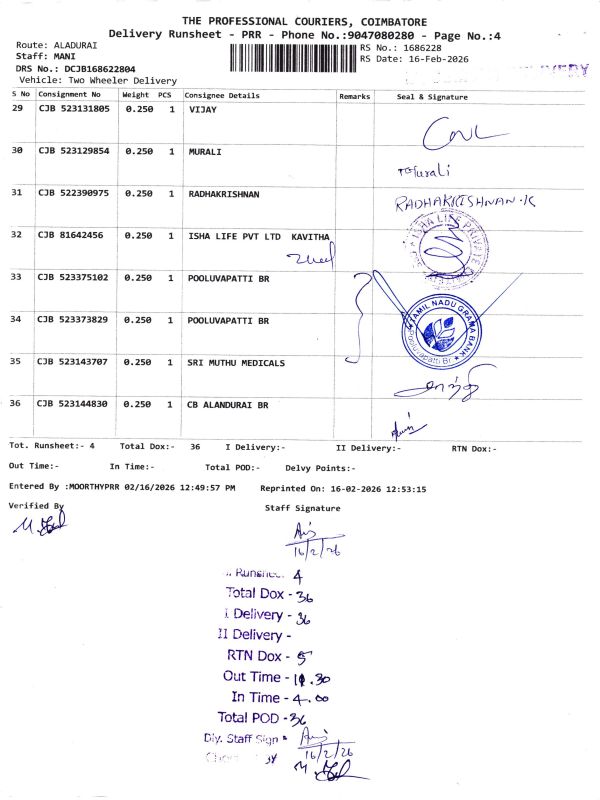 THE PROFESSIONAL COURIERS, COIMBATORE
Delivery Runsheet - PRR - Phone No.:9047080280 - Page No.:4
Route: ALADURAI
RS No.: 1686228
Staff: MANI
RS Date: 16-Feb-2026
DRS No.: DCJB168622804
Vehicle: Two Wheeler Delivery
S No Consignment No Weight PCS Consignee Details Remarks Seal & Signature
29 CJB 523131805 0.250 1 VIJAY
30 CJB 523129854 0.250 1 MURALI
Murali
31 CJB 522390975 0.250 1 RADHAKRISHNAN
RADHAKRISHNAN.K
32 CJB 81642456 0.250 1 ISHA LIFE PVT LTD KAVITHA
ISHA LIFE PRIVATE
33 CJB 523375102 0.250 1 POOLUVAPATTI BR
34 CJB 523373829 0.250 1 POOLUVAPATTI BR
TAMIL NADU GRAMA BANK
Pooluvapatti Br
35 CJB 523143707 0.250 1 SRI MUTHU MEDICALS
36 CJB 523144830 0.250 1 CB ALANDURAI BR
Tot. Runsheet:- 4 Total Dox:- 36 I Delivery:- II Delivery:- RTN Dox:-
Out Time:- In Time:- Total POD:- Delvy Points:-
Entered By :MOORTHYPRR 02/16/2026 12:49:57 PM Reprinted On: 16-02-2026 12:53:15
Verified By Staff Signature
16/2/26
Runsheet 4
Total Dox - 36
I Delivery - 36
II Delivery -
RTN Dox - 5
Out Time - 11.30
In Time - 4.00
Total POD - 36
Dly. Staff Sign
16/2/26